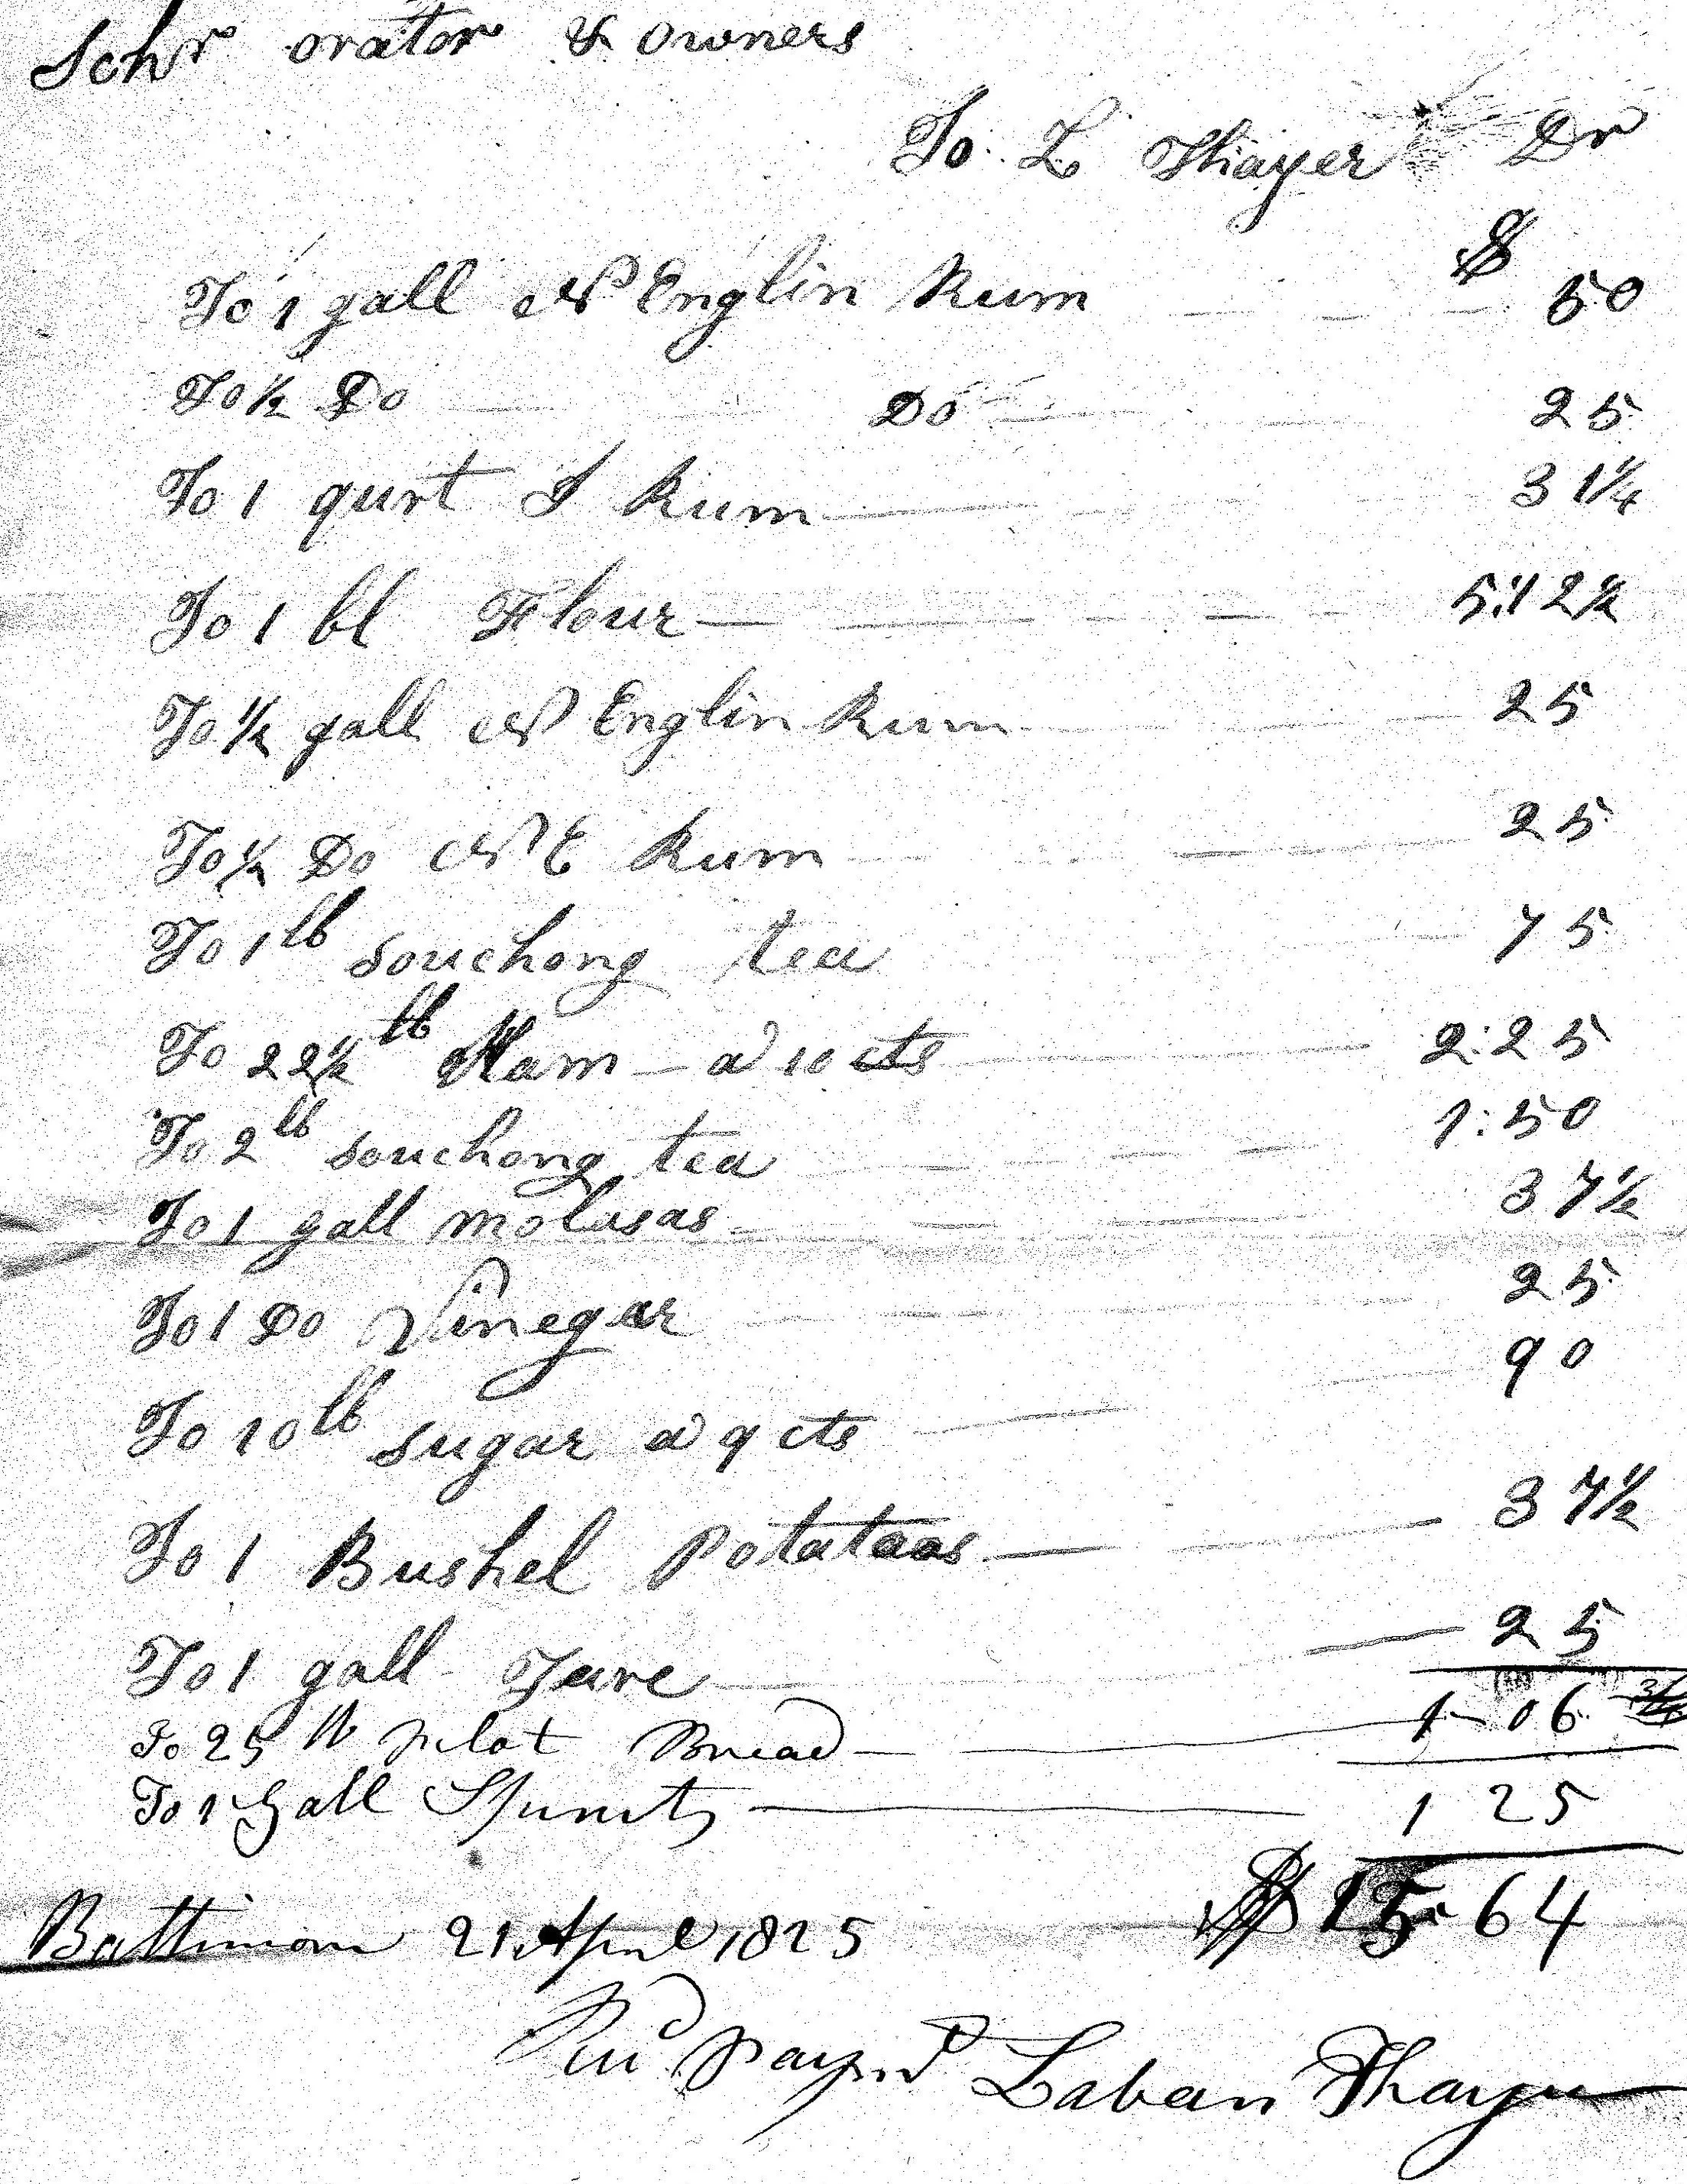 Schr orator & owners
To L Thayer Dr
$
To 1 gall N Englin Rum 50
To ½ Do Do 25
To 1 qurt J Rum 31¼
To 1 bl Flour 5:12½
To ½ gall N Englin Rum 25
To ½ Do N E Rum 25
To 1 lb souchong tea 75
To 22½ lb Ham a 10 cts 2:25
To 2 lb souchong tea 1:50
To 1 gall molasas 37½
To 1 Do Vinegar 25
To 10 lb sugar a 9 cts 90
To 1 Bushel potataos 37½
To 1 gall 25
To 25 lb pilot Bread 1-06
To 1 Gall Spirits 1 25
Baltimore 21 April 1825 $ 15-64
Laban Thayer